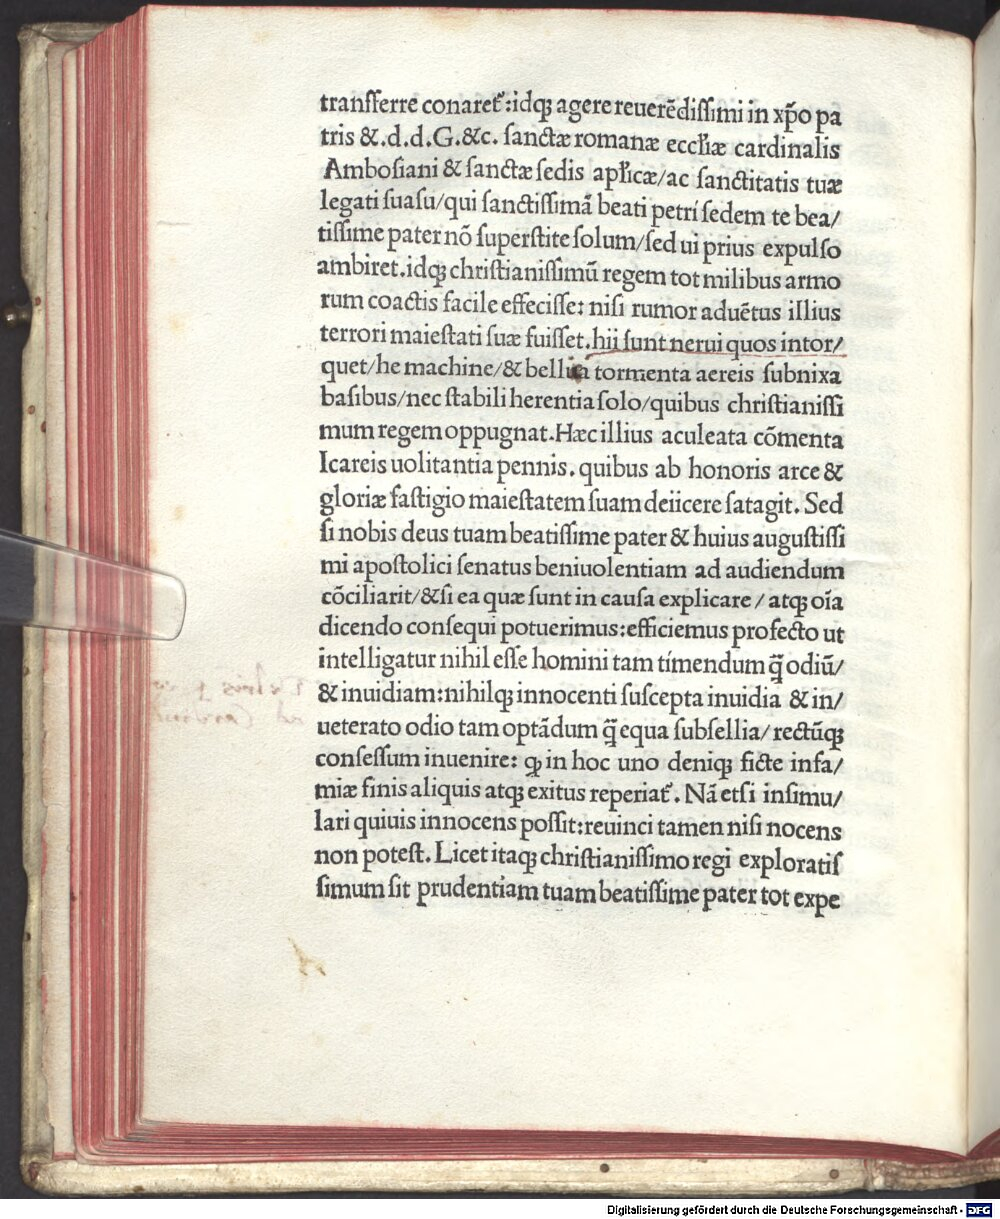 tranſferre conaret᷑:idqꝫ agere reuerēdiſſimi in xp̄o pa
tris &.d.d.G.&c. ſanctæ romanæ eccl̄iæ cardinalis
Amboſiani & ſanctæ ſedis apl̄icæ/ac ſanctitatis tuæ
legati ſuaſu/qui ſanctiſſimā beati petri ſedem te bea/
tiſſime pater nō ſuperſtite ſolum/ſed ui prius expulſo
ambiret.idqꝫ chriſtianiſſimū regem tot milibus armo
rum coactis facile effeciſſe: niſi rumor aduētus illius
terrori maieſtati ſuæ fuiſſet.hii ſunt nerui quos intor/
quet/he machine/& bellica tormenta aereis ſubnixa
baſibus/nec ſtabili herentia ſolo/quibus chriſtianiſſi
mum regem oppugnat.Hæc illius aculeata cōmenta
Icareis uolitantia pennis. quibus ab honoris arce &
gloriæ faſtigio maieſtatem ſuam deiicere ſatagit. Sed
ſi nobis deus tuam beatiſſime pater & huius auguſtiſſi
mi apoſtolici ſenatus beniuolentiam ad audiendum
cōciliarit/&ſi ea quæ ſunt in cauſa explicare / atqꝫ oīa
dicendo conſequi potuerimus:efficiemus profecto ut
intelligatur nihil eſſe homini tam timendum q̄ odiū/
& inuidiam:nihilqꝫ innocenti ſuſcepta inuidia & in/
ueterato odio tam optādum q̄ equa ſubſellia/rectūqꝫ
conſeſſum inuenire: ꝙ in hoc uno deniqꝫ ficte infa/
miæ finis aliquis atqꝫ exitus reperiat᷑. Nā etſi inſimu/
lari quiuis innocens poſſit:reuinci tamen niſi nocens
non poteſt. Licet itaqꝫ chriſtianiſſimo regi exploratiſ
ſimum ſit prudentiam tuam beatiſſime pater tot expe
Digitalisierung gefördert durch die Deutsche Forschungsgemeinschaft - DFG